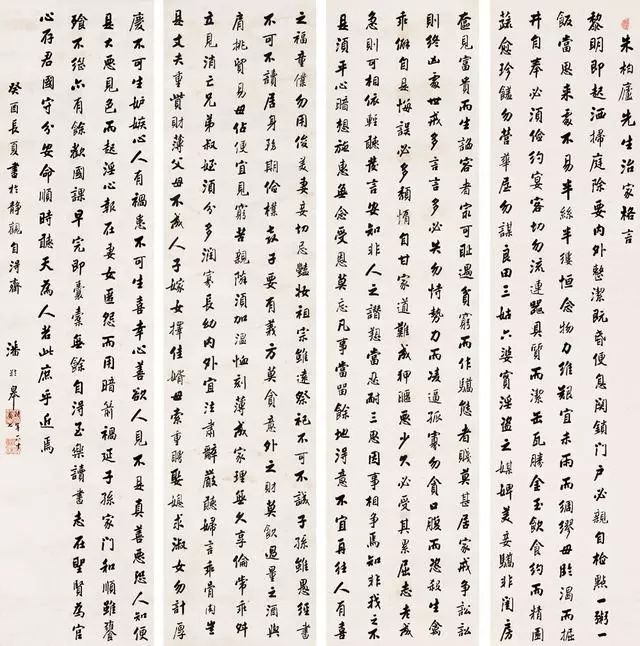 朱柏廬先生治家格言
黎明即起洒掃庭除要内外整潔既昏便息関鎖门户必親自檢點一粥一
飯當思来處不易半絲半縷恒念物力維艱宜未雨而綢繆毋臨渴而掘
井自奉必須儉約宴客切勿流連器具質而潔缶瓦勝金玉飲食約而精園
蔬愈珍饈勿營華屋勿謀良田三姑六婆實淫盜之媒婢美妾驕非閨房
奩見富貴而生諂容者家可耻遇貧窮而作驕態者賤莫甚居家戒争訟訟
則終凶處世戒多言言多必失勿恃勢力而凌逼孤寡勿貪口腹而恣殺生禽
乖僻自是悔誤必多頹惰自甘家道難成狎暱惡少久必受其累屈志老成
急則可相依輕聽發言安知非人之譖愬當忍耐三思因事相争焉知非我之不
是須平心暗想施惠無念受恩莫忘凡事當留餘地得意不宜再往人有喜
之福童僕勿用俊美妻妾切忌艷妝祖宗雖遠祭祀不可不誠子孫雖愚經書
不可不讀居身務期儉樸教子要有義方莫貪意外之財莫飲過量之酒與
肩挑貿易毋佔便宜見窮苦親隣須加温恤刻薄成家理無久享倫常乖舛
立見消亡兄弟叔姪須分多潤寡長幼内外宜法肅辭嚴聽婦言乖骨肉豈
是丈夫重貲財薄父母不成人子嫁女擇佳婿毋索重聘娶媳求淑女勿計厚
慶不可生妒嫉心人有禍患不可生喜幸心善欲人見不是真善惡恐人知便
是大惡見色而起淫心報在妻女匿怨而用暗箭禍延子孫家門和順雖饔
飧不繼亦有餘歡國課早完即囊橐無餘自得至樂讀書志在聖賢為官
心存君國守分安命順時聽天為人若此庶乎近焉
癸酉長夏書於静觀自得齋 潘齡皋